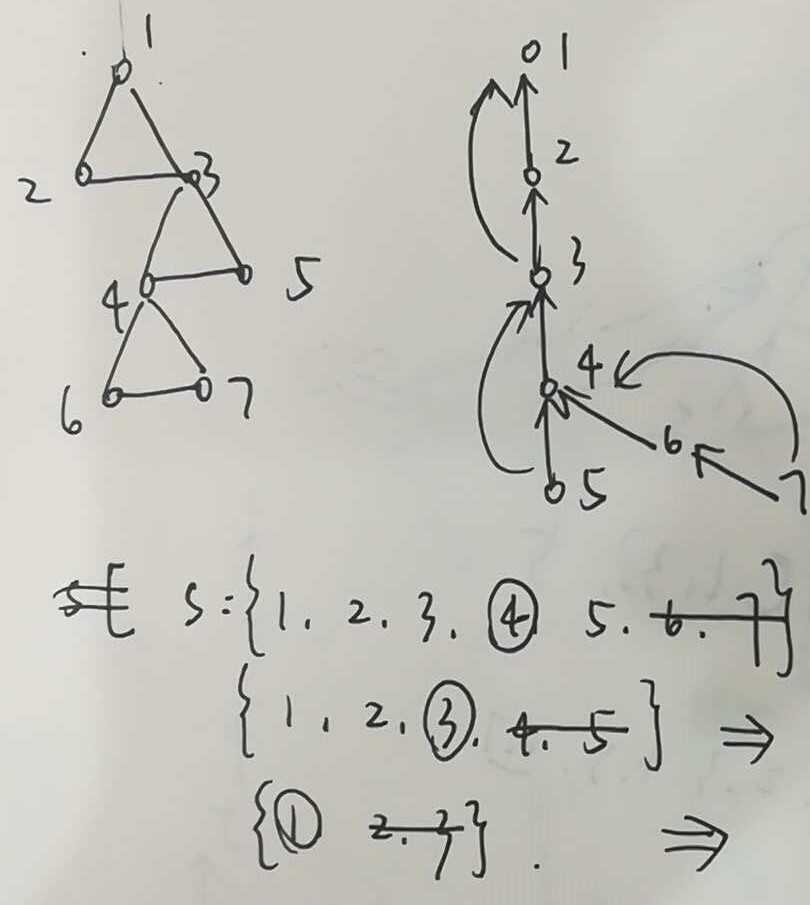 1
2
3
4
5
6
7
1
2
3
4
6
7
5
S: {1. 2. 3. ④ 5. 6. 7}
{1. 2. ③. 4. 5} ⇒
{① 2. 3}. ⇒